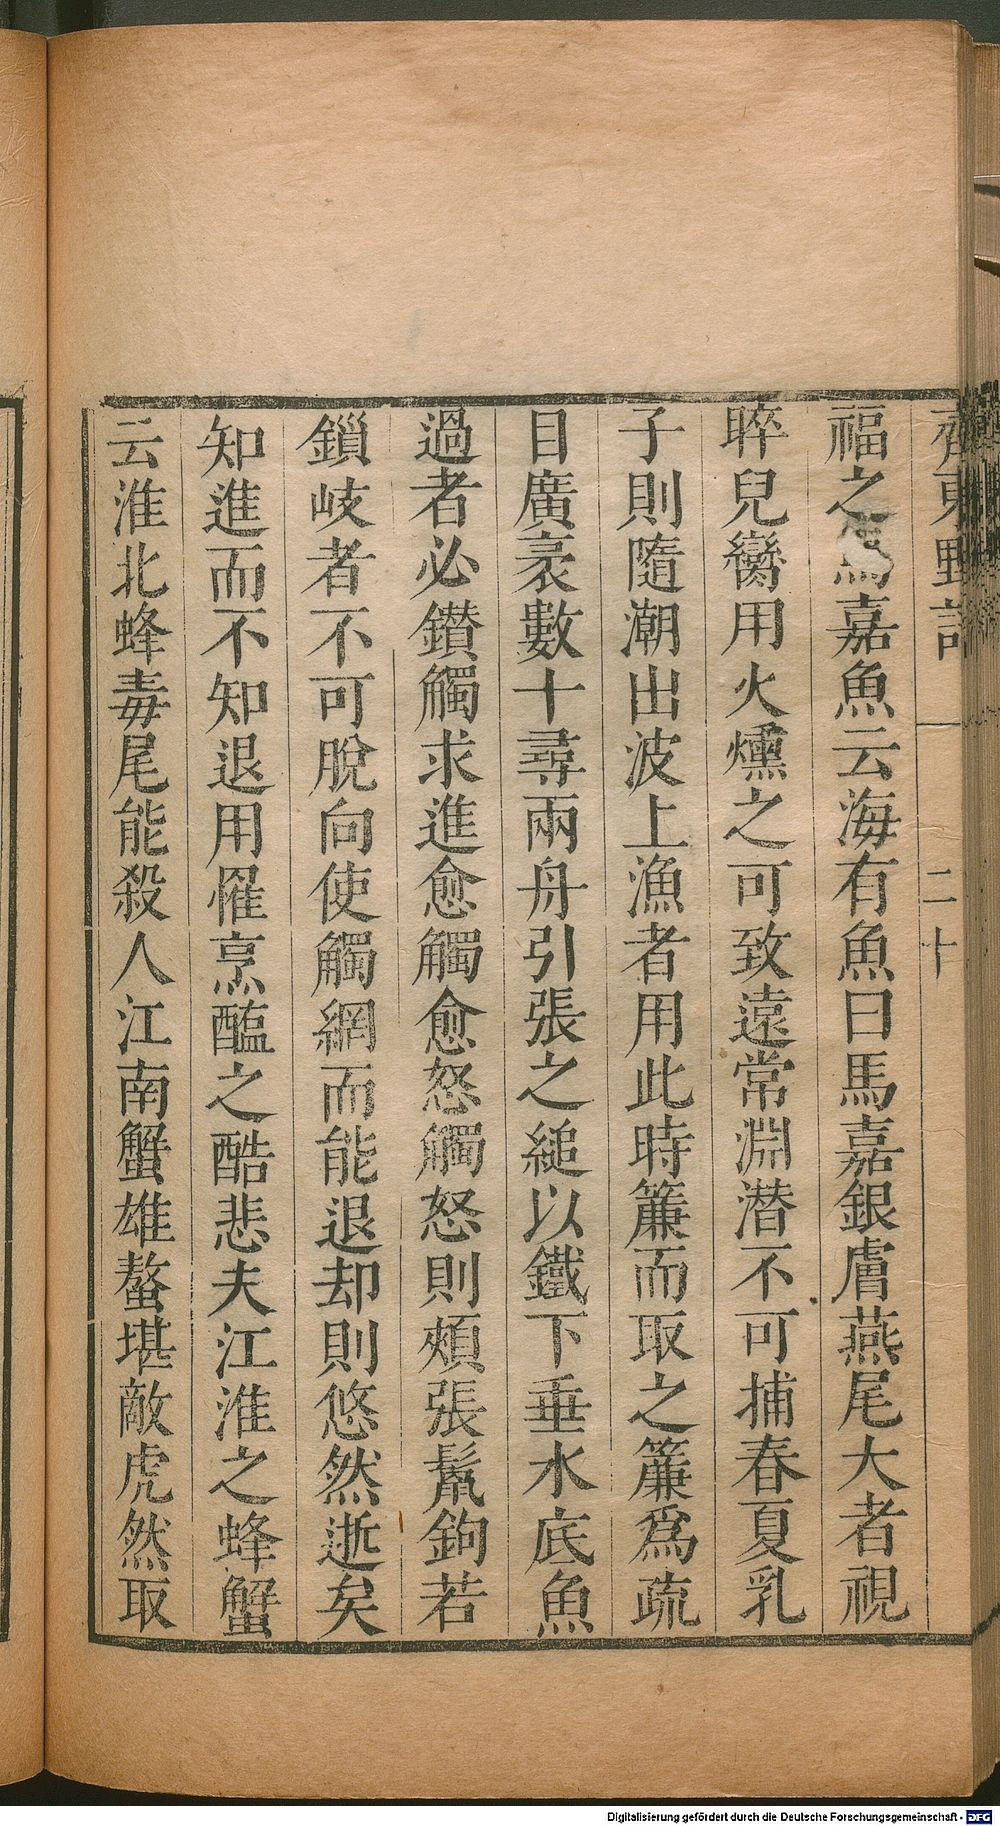 齊東野語 二十
福之馬嘉魚云海有魚曰馬嘉銀膚燕尾大者視
睟兒臠用火燻之可致遠常淵潜不可捕春夏乳
子則隨潮出波上漁者用此時簾而取之簾爲疏
目廣袤數十尋兩舟引張之縋以鐵下垂水底魚
過者必鑽觸求進愈觸愈怒觸怒則頰張鬛鉤若
鎻岐者不可脫向使觸網而能退却則悠然逝矣
知進而不知退用罹烹醢之酷悲夫江淮之蜂蟹
云淮北蜂毒尾能殺人江南蟹雄螯堪敵虎然取
Digitalisierung gefördert durch die Deutsche Forschungsgemeinschaft - DFG